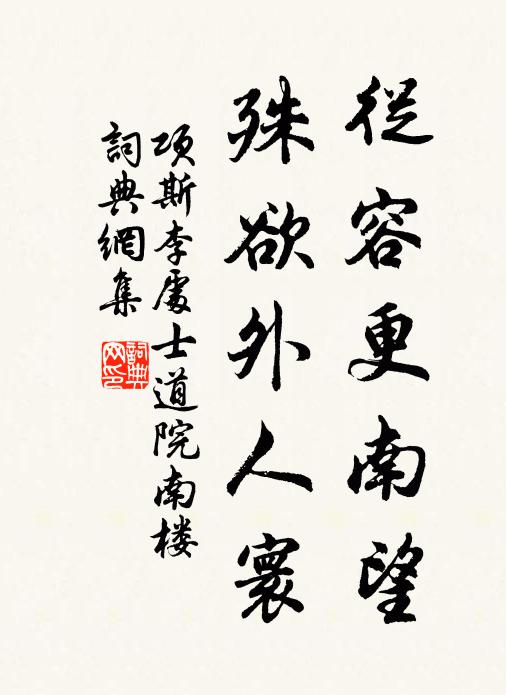 從容更南望
殊欲外人寰
项斯李處士道院南楼
詞典網集
詞典
网印